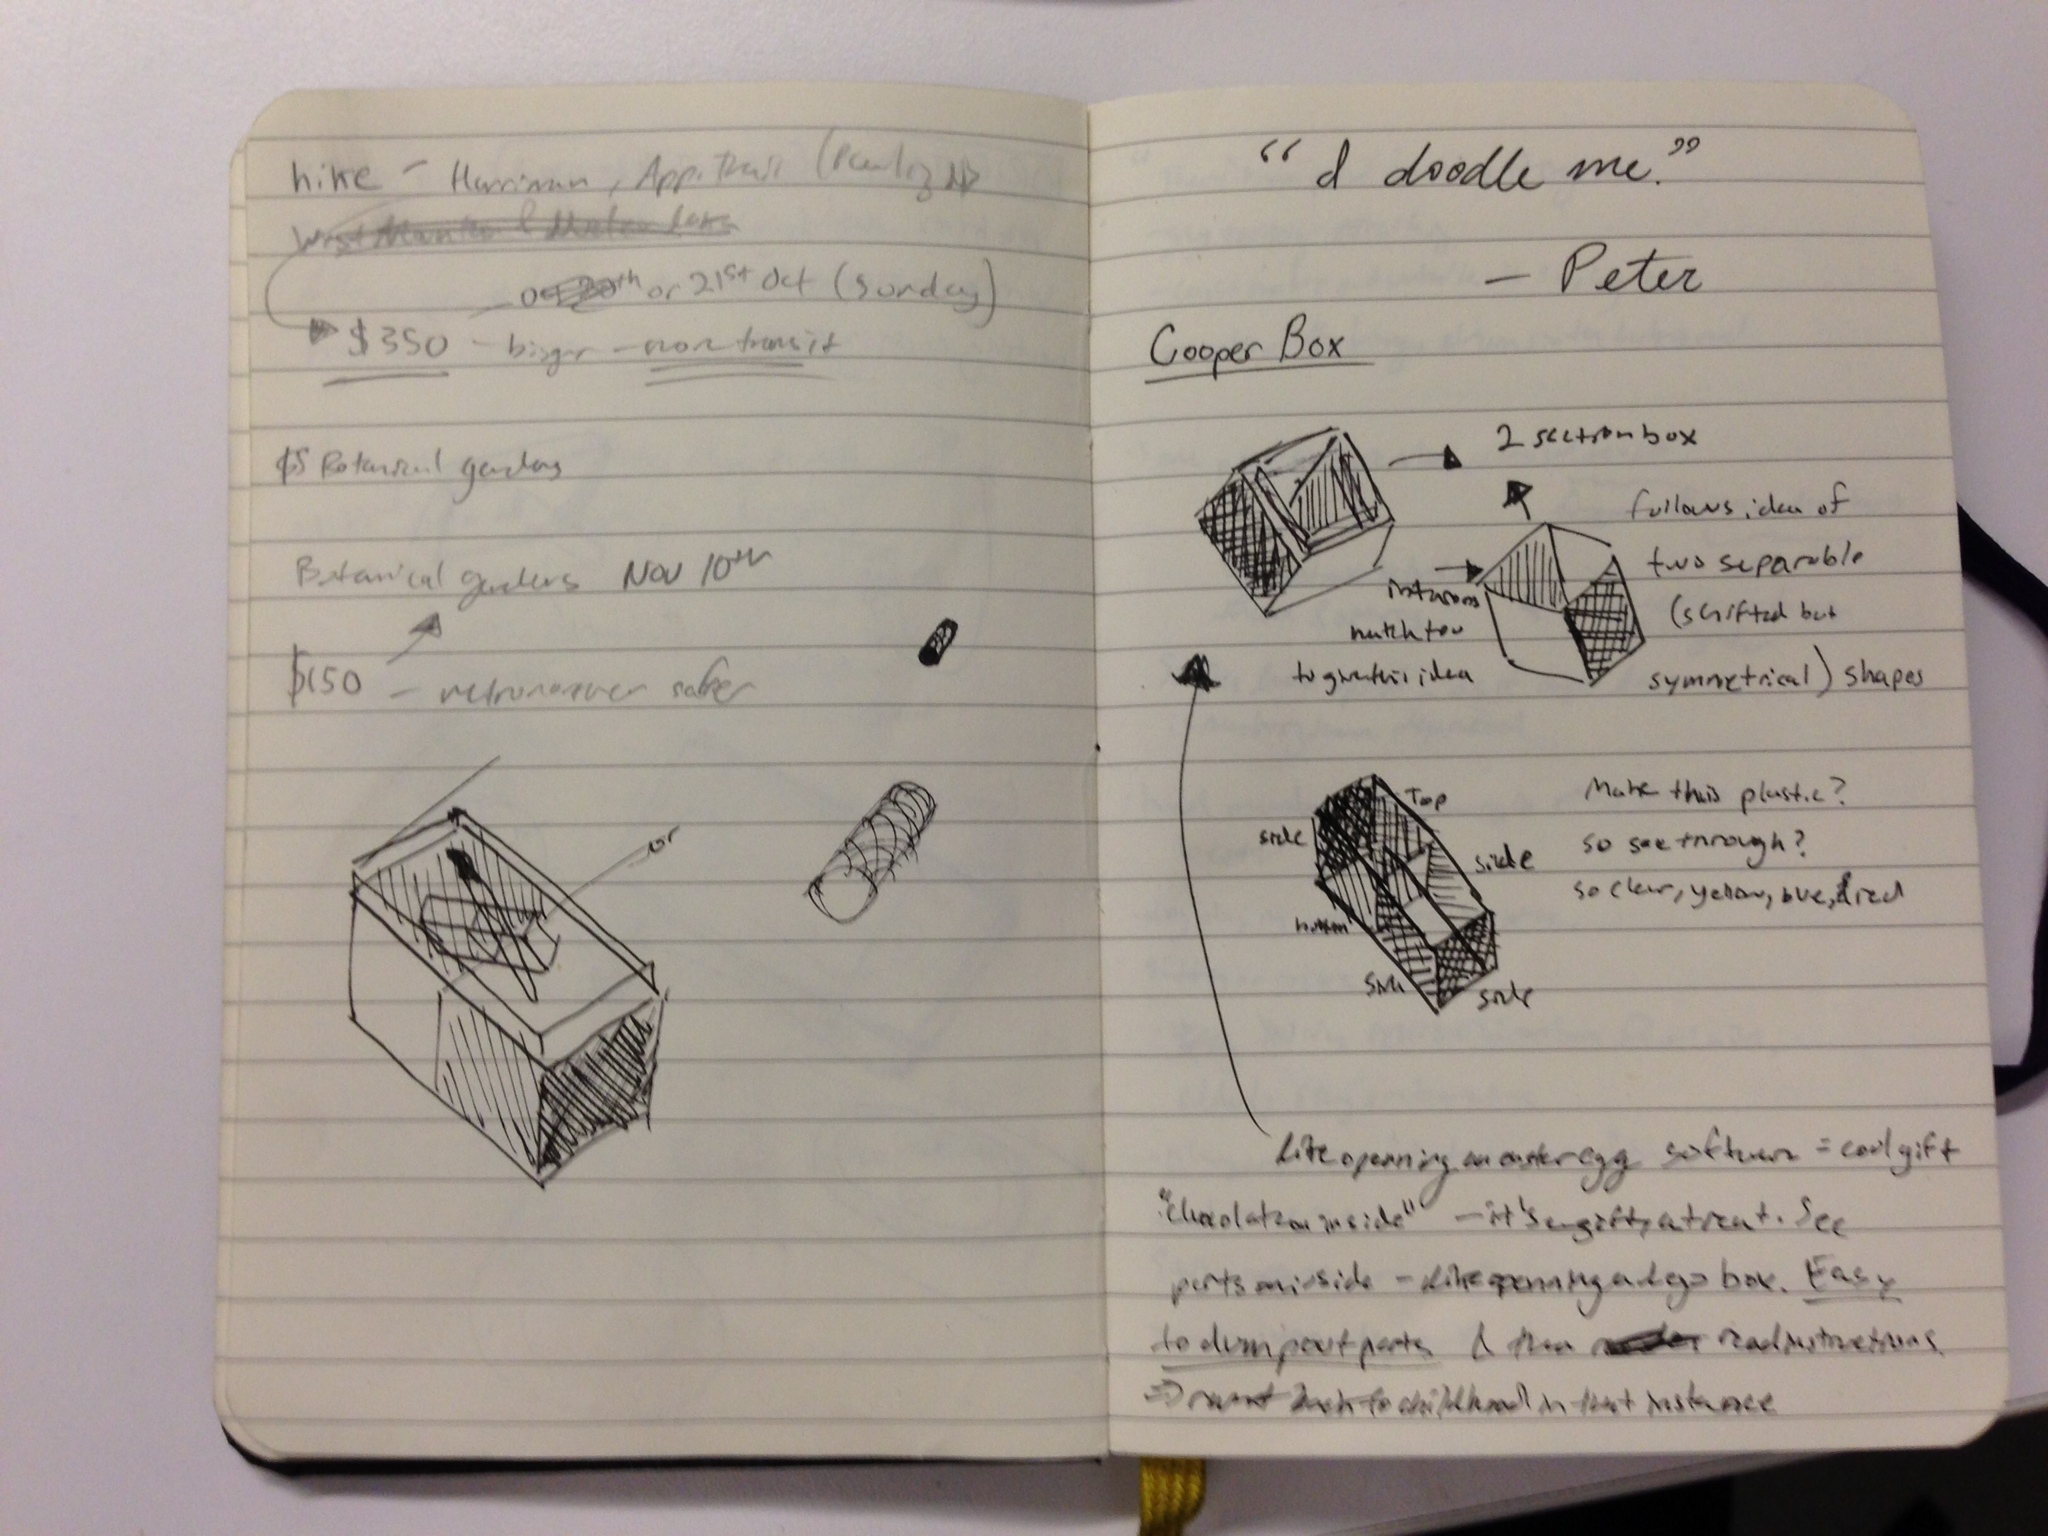 hike - Harriman, App. Trail
or 21st Oct (Sunday)
$350 - bigger - more transit
$5 Botanical gardens
Botanical gardens Nov 10th
$150 -
or
"I doodle me."
- Peter
Cooper Box
2 section box
follows idea of
two separable
(shifted but
symmetrical) shapes
interiors
match too
to give this idea
Top
side
side
bottom
side
side
Make this plastic?
so see through?
so clear, yellow, blue, & red
Like openning an easter egg software = cool gift
"chocolate on inside" - it's a gift, a treat. See
parts on inside - like openning a lego box. Easy
to dump out parts & then read instructions.
=> revert back to childhood in that instance